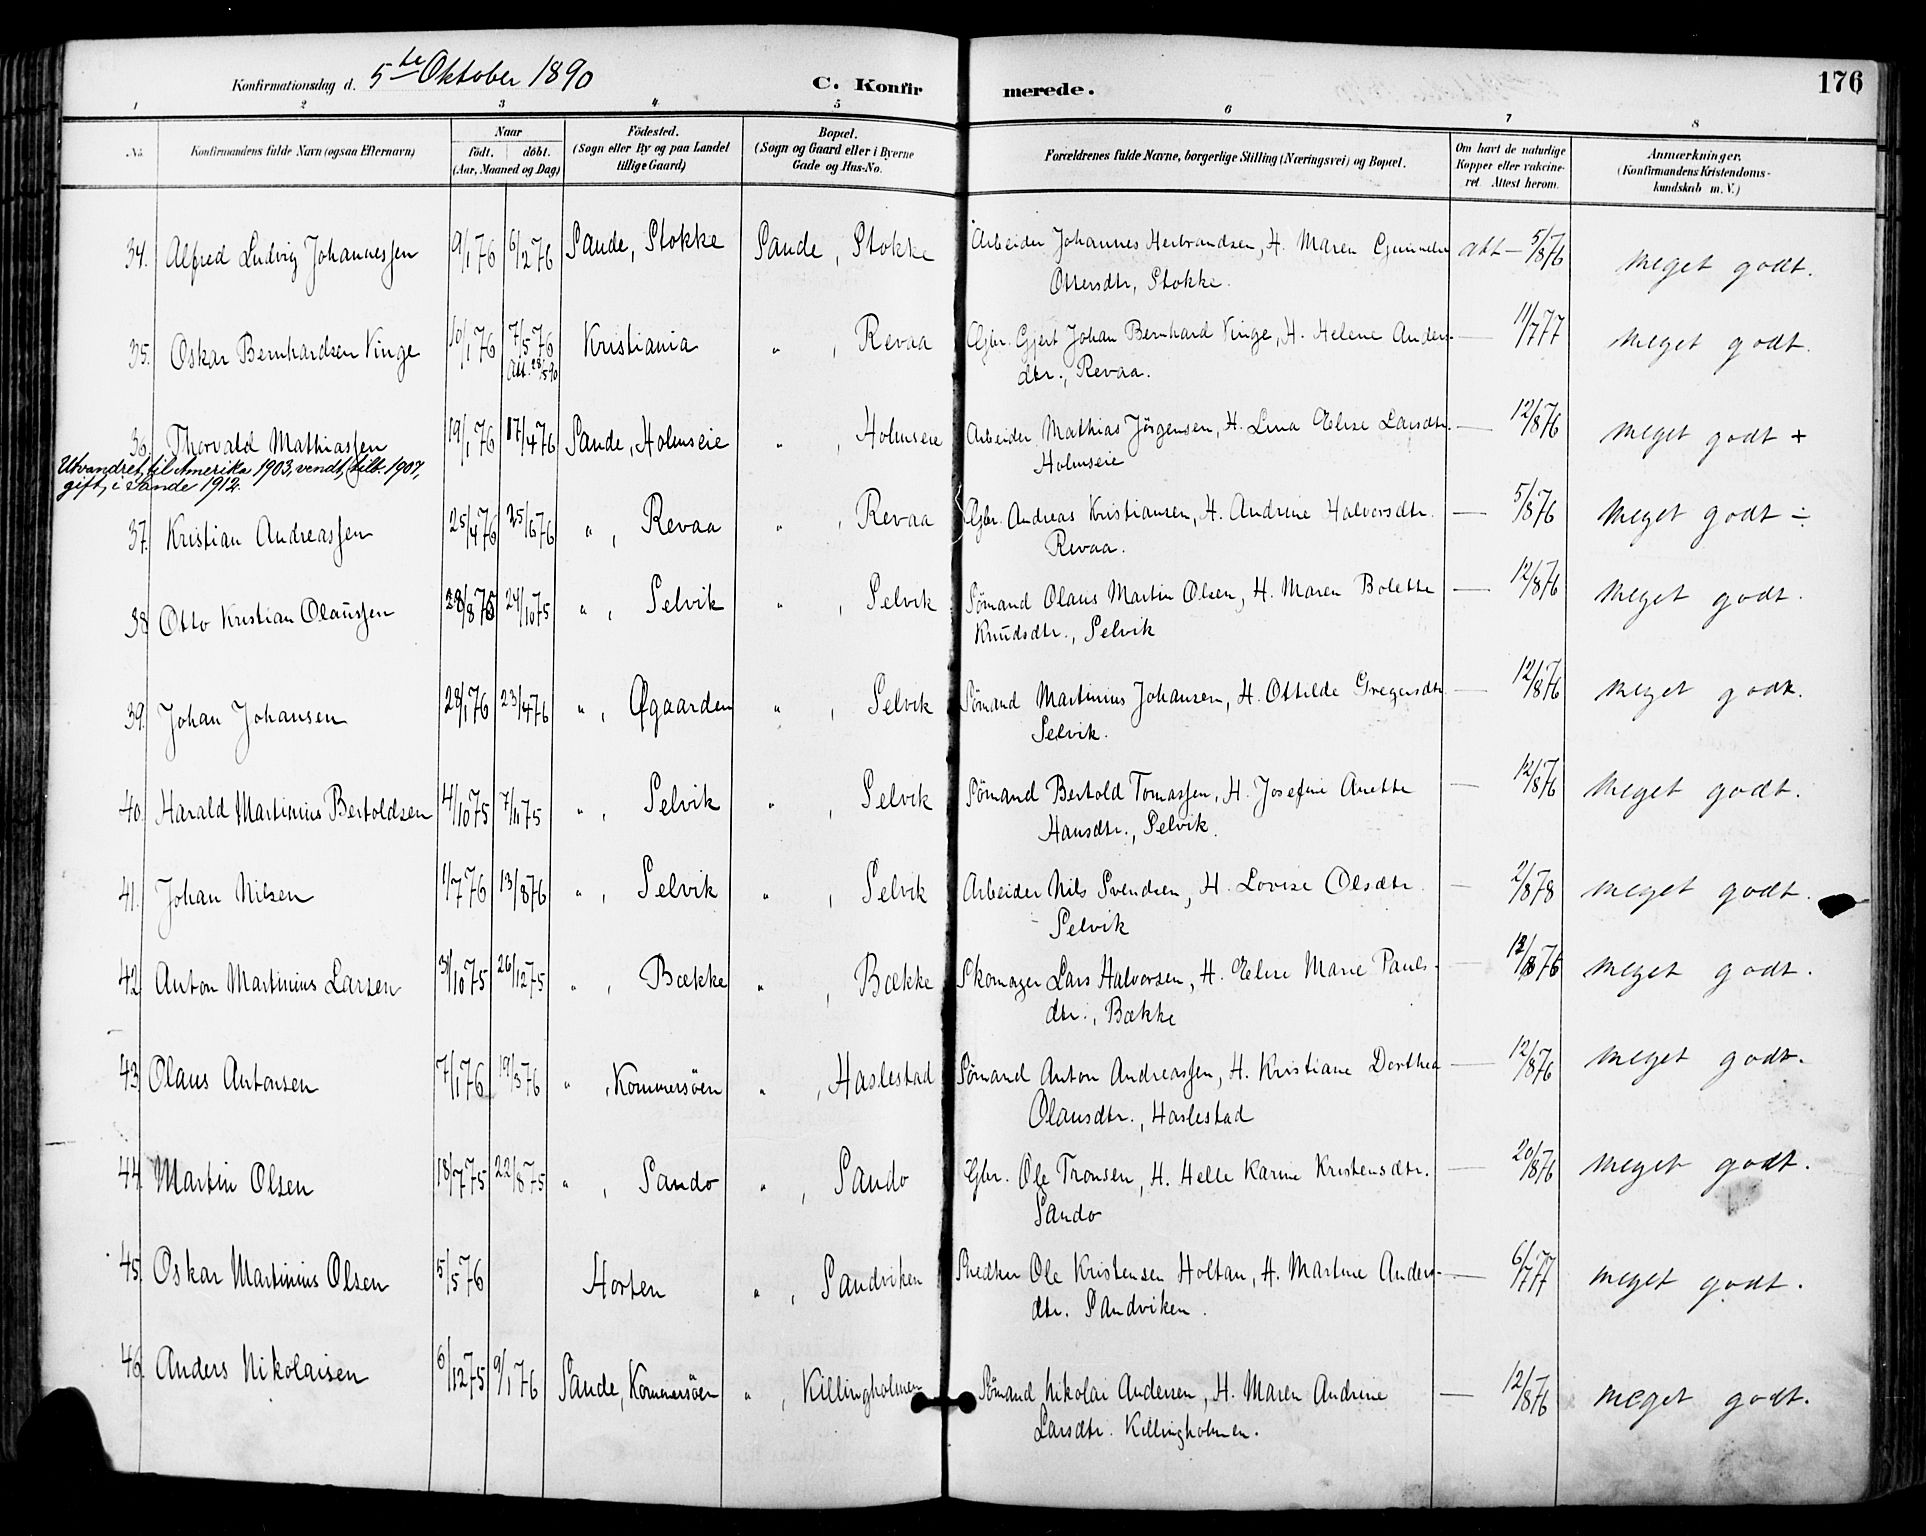 Konfirmationsdag d. 5te Oktober 1890 C. Konfir merede. 176
1 2 3 4 5 6 7 8
No. Konfirmandens fulde Navn (ogsaa Efternavn) Naar födt. döbt. (Aar, Maaned og Dag) Födested. (Sogn eller By og paa Landet tillige Gaard) Bopæl. (Sogn og Gaard eller i Byerne Gade og Hus-No. Forældrenes fulde Navne, borgerlige Stilling (Næringsvei) og Bopæl. Om havt de naturlige Kopper eller vakcineret. Attest herom. Anmærkninger. (Konfirmandens Kristendomskundskab m. V.)
34. Alfred Ludvig Johannessen 9/1 76 6/2 76 Sande, Stokke Sande, Stokke Arbeider Johannes Herbrandsen, H. Maren Gunneler att — 5/8 76 meget godt.
Ottersdtr, Stokke.
35. Oskar Bernhardsen Vinge 10/1 76 7/5 76 Kristiania " , Revaa Gbr. Gjert Johan Bernhard Vinge, H. Helene Anders- — 11/7 77 meget godt.
Att. 28/5 90 dtr., Revaa.
36. Thorvald Mathiassen 19/1 76 17/4 76 Sande, Holmseie " , Holmseie Arbeider Mathias Jörgensen, H. Lina Elise Larsdtr. — 12/8 76 meget godt +
Utvandret til Amerika 1903, vendt tilb. 1907, Holmseie
gift i Sande 1912.
37. Kristian Andreassen 25/4 76 25/6 76 " , Revaa " , Revaa Gbr. Andreas Kristiansen, H. Andrine Halvorsdtr. — 5/8 76 meget godt ÷
Revaa.
38 Otto Kristian Olaussen 28/8 75 24/10 75 " , Selvik " , Selvik Sömand Olaus Martin Olsen, H. Maren Bolette — 12/8 76 meget godt.
Knudsdtr., Selvik
39. Johan Johansen 28/1 76 23/4 76 " , Øgaarden " , Selvik Sömand Martinius Johansen, H. Ottilde Gregersdtr — 12/8 76 meget godt.
Selvik.
40. Harald Martinius Bertoldsen 4/10 75 7/11 75 " , Selvik " , Selvik Sömand Bertold Tomassen, H. Josefine Anette — 12/8 76 meget godt.
Hansdtr., Selvik.
41. Johan Nilsen 1/7 76 13/8 76 " , Selvik " , Selvik Arbeider Nils Svendsen, H. Lovise Olsdtr. — 2/8 78 meget godt.
Selvik
42. Anton Martinius Larsen 31/10 75 26/12 75 " , Bække " , Bække Skomager Lars Halvorsen, H. Elise Marie Pauls- — 12/8 76 meget godt.
dtr., Bække
43. Olaus Antonsen 7/1 76 19/3 76 " , Kommersöen " , Haslestad Sömand Anton Andreassen, H. Kristiane Dorthea — 12/8 76 meget godt.
Olausdtr., Haslestad
44. Martin Olsen 18/7 75 22/8 75 " , Sando " , Sando Gbr. Ole Tronsen, H. Helle Karine Kristensdtr. — 20/8 76 meget godt.
Sando
45. Oskar Martinius Olsen 5/5 76 Horten " , Sandviken Snedker Ole Kristensen Holtan, H. Martine Anders- — 6/7 77 meget godt.
dtr. Sandviken.
46. Anders Nikolaisen 6/12 75 9/1 76 Sande, Kommersöen " , Killingholmen Sömand Nikolai Andersen, H. Maren Andrine — 12/8 76 meget godt.
Larsdtr. Killingholmen.